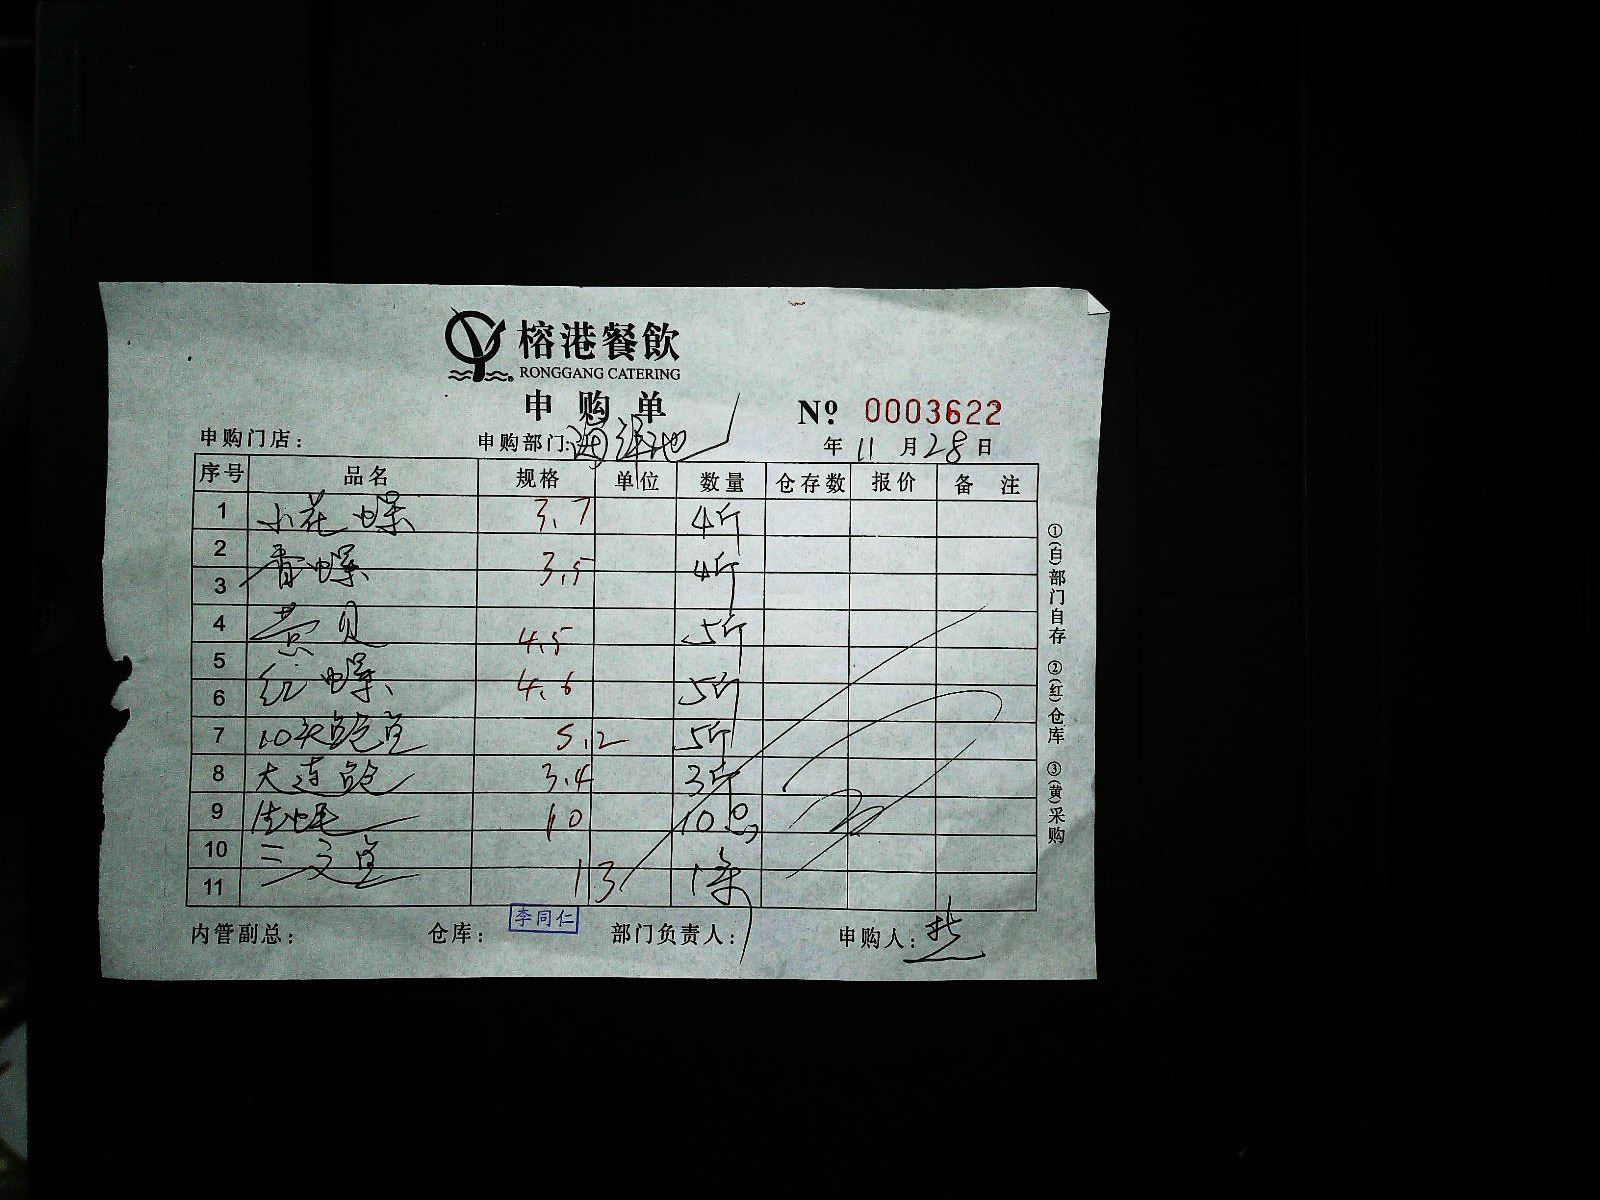 榕港餐飲
RONGGANG CATERING
申购单
№ 0003622
申购门店： 申购部门: 海鲜池 年 11 月 28 日
序号 品名 规格 单位 数量 仓存数 报价 备注
1 小花螺 3.7 4斤
2 香螺 3.5 4斤
3
4 黄贝 4.5 5斤
5 红螺 4.6 5斤
6
7 10头鲍鱼 5.2 5斤
8 大连鲍 3.4 3斤
9 生蚝 10 10只
10 三文鱼 13 1条
11
内管副总： 仓库： 李同仁 部门负责人： 申购人：
①(白)部门自存 ②(红)仓库 ③(黄)采购